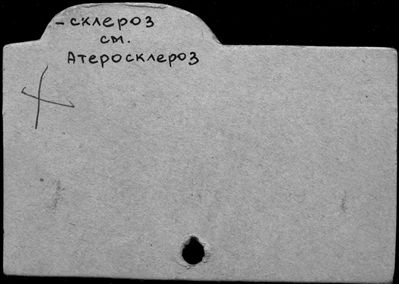 -склероз
см.
Атеросклероз